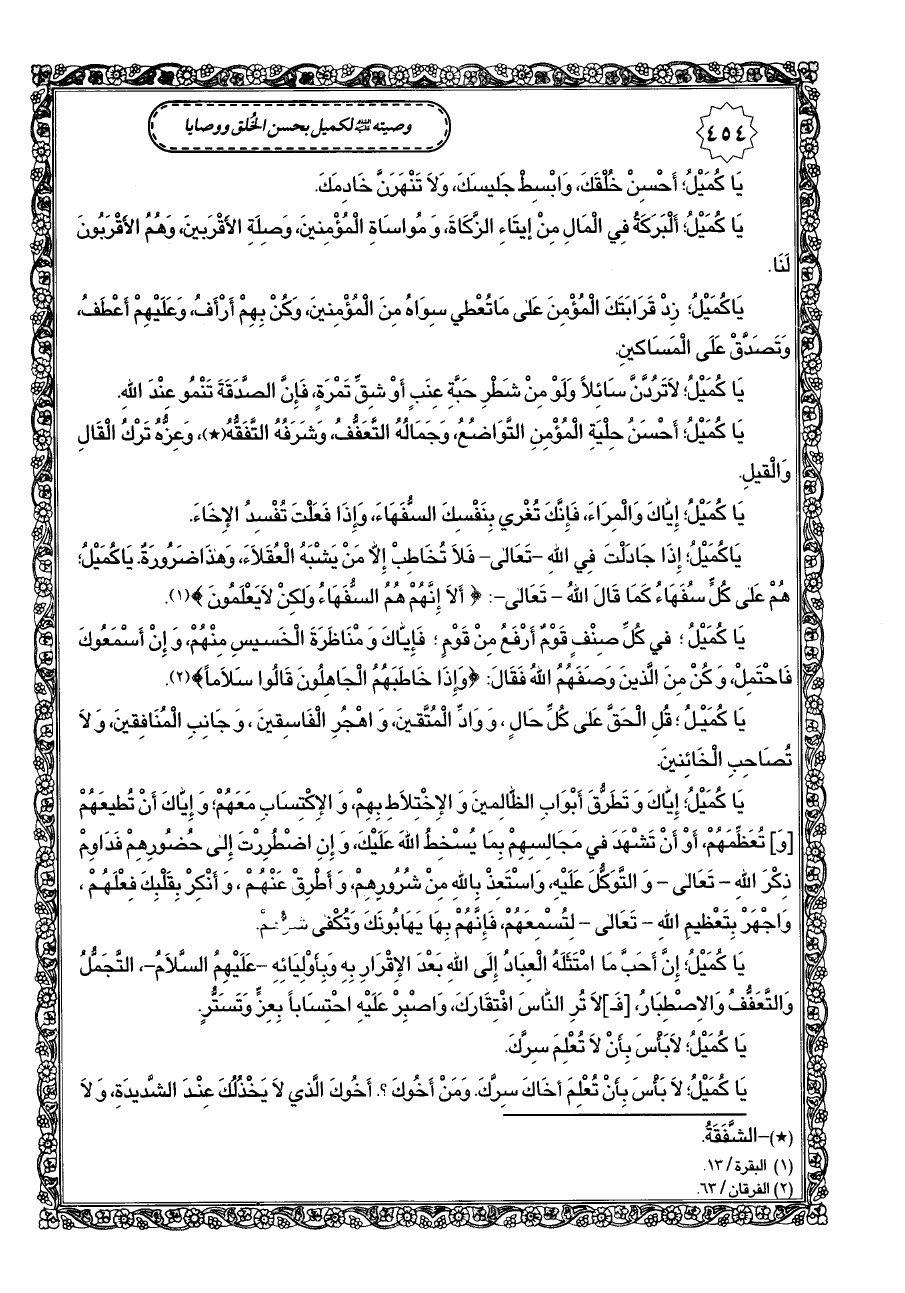 ٤٥٤
وصيته عليه السلام لكميل بحسن الخُلق ووصايا
يَا كُمَيْلُ؛ أَحْسِنْ خُلْقَكَ، وَابْسِطْ جَلِيسَكَ، وَلَا تَنْهَرَنَّ خَادِمَكَ.
يَا كُمَيْلُ؛ أَلْبَرَكَةُ فِي الْمَالِ مِنْ إِيتَاءِ الزَّكَاةِ، وَ مُواسَاةِ الْمُؤْمِنِينَ، وَصِلَةِ الأَقْرَبِينَ، وَهُمُ الأَقْرَبُونَ
لَنَا.
يَاكُمَيْلُ؛ زِدْ قَرَابَتَكَ الْمُؤْمِنَ عَلىٰ مَاتُعْطي سِوَاهُ مِنَ الْمُؤْمِنينَ، وَكُنْ بِهِمْ أَرْأَفُ، وَعَلَيْهِمْ أَعْطَفُ،
وَتَصَدَّقْ عَلَى الْمَسَاكينِ.
يَا كُمَيْلُ؛ لاَتَرُدَّنَّ سَائِلاً وَلَوْ مِنْ شَطْرِ حَبَّةِ عِنَبٍ أَوْ شِقِّ تَمْرَةٍ، فَإِنَّ الصَّدَقَةَ تَنْمُو عِنْدَ اللهِ.
يَا كُمَيْلُ؛ أَحْسَنُ حِلْيَةِ الْمُؤْمِنِ التَّوَاضُعُ، وَجَمَالُهُ التَّعَفُّفُ، وَشَرَفُهُ التَّفَقُّهُ(★)، وَعِزُّهُ تَرْكُ الْقَالِ
وَالْقيلِ.
يَا كُمَيْلُ؛ إِيَّاكَ وَالْمِرَاءَ، فَإِنَّكَ تُغْري بِنَفْسِكَ السُّفَهَاءَ، وَإِذَا فَعَلْتَ تُفْسِدُ الإِخَاءَ.
يَاكُمَيْلُ؛ إِذَا جَادَلْتَ فِي اللهِ –تَعَالى– فَلاَ تُخَاطِبْ إِلاَّ مَنْ يَشْبَهُ الْعُقَلاَءَ، وَهٰذَا ضَرُورَةٌ. يَاكُمَيْلُ؛
هُمْ عَلىٰ كُلٍّ سُفَهَاءُ كَمَا قَالَ اللهُ – تَعَالى–: ﴿ أَلاَ إِنَّهُمْ هُمُ السُّفَهَاءُ وَلَكِنْ لاَيَعْلَمُونَ ﴾(١).
يَا كُمَيْلُ ؛ في كُلِّ صِنْفٍ قَوْمٌ أَرْفَعُ مِنْ قَوْمٍ ؛ فَإِيَّاكَ وَ مُنَاظَرَةَ الْخَسيسِ مِنْهُمْ، وَ إِنْ أَسْمَعُوكَ
فَاحْتَمِلْ، وَ كُنْ مِنَ الَّذينَ وَصَفَهُمُ اللهُ فَقَالَ: ﴿وَإِذَا خَاطَبَهُمُ الْجَاهِلُونَ قَالُوا سَلاَماً﴾(٢).
يَا كُمَيْلُ ؛ قُلِ الْحَقَّ عَلىٰ كُلِّ حَالٍ ، وَ وَادِّ الْمُتَّقينَ، وَ اهْجُرِ الْفَاسِقينَ ، وَ جَانِبِ الْمُنَافِقينَ، وَ لاَ
تُصَاحِبِ الْخَائِنينَ.
يَا كُمَيْلُ؛ إِيَّاكَ وَ تَطَرُّقَ أَبْوَابِ الظَّالِمينَ وَ الإِخْتِلاَطَ بِهِمْ، وَ الإِكْتِسَابَ مَعَهُمْ؛ وَ إِيَّاكَ أَنْ تُطيعَهُمْ
[وَ] تُعَظِّمَهُمْ، أَوْ أَنْ تَشْهَدَ في مَجَالِسِهِمْ بِمَا يُسْخِطُ اللهَ عَلَيْكَ، وَ إِنِ اضْطُرِرْتَ إِلى حُضُورِهِمْ فَدَاوِمْ
ذِكْرَ اللهِ – تَعَالى – وَ التَّوَكُّلَ عَلَيْهِ، وَاسْتَعِذْ بِاللهِ مِنْ شُرُورِهِمْ، وَ أَطْرِقْ عَنْهُمْ ، وَ أَنْكِرْ بِقَلْبِكَ فِعْلَهُمْ ،
وَ اجْهَرْ بِتَعْظيمِ اللهِ – تَعَالى – لِتُسْمِعَهُمْ، فَإِنَّهُمْ بِهَا يَهَابُونَكَ وَتُكْفىٰ شَرَّهُمْ.
يَا كُمَيْلُ؛ إِنَّ أَحَبَّ مَا امْتَثَلَهُ الْعِبَادُ إِلَى اللهِ بَعْدَ الإِقْرَارِ بِهِ وَبِأَوْلِيَائِهِ –عَلَيْهِمُ السَّلاَمُ–، التَّجَمُّلُ
وَالتَّعَفُّفُ وَالاِصْطِبَارُ، [فَـ]لاَ تُرِ النَّاسَ افْتِقَارَكَ، وَاصْبِرْ عَلَيْهِ احْتِسَاباً بِعِزٍّ وَتَسَتُّرٍ.
يَا كُمَيْلُ؛ لاَبَأْسَ بِأَنْ لاَ تُعْلِمَ سِرَّكَ.
يَا كُمَيْلُ؛ لاَ بَأْسَ بِأَنْ تُعْلِمَ أَخَاكَ سِرَّكَ. وَمَنْ أَخُوكَ ؟. أَخُوكَ الَّذي لاَ يَخْذُلُكَ عِنْدَ الشَّديدَةِ، وَ لاَ
(★)–الشَّفَقَةُ.
(١) البقرة / ١٣.
(٢) الفرقان / ٦٣.